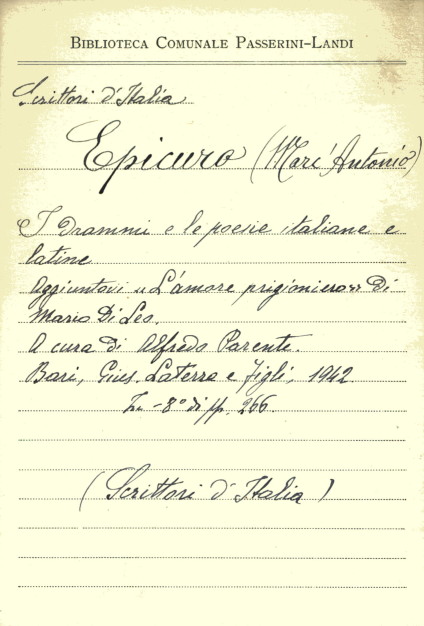 BIBLIOTECA COMUNALE PASSERINI-LANDI
Scrittori d'Italia
Epicuro (Marc'Antonio)
I Drammi e le poesie italiane e
latine
Aggiuntovi "L'amore prigioniero" Di
Mario Di Leo.
A cura di Alfredo Parente.
Bari, Gius. Laterza e Figli, 1942.
In-8° di pp. 266.
(Scrittori d'Italia)